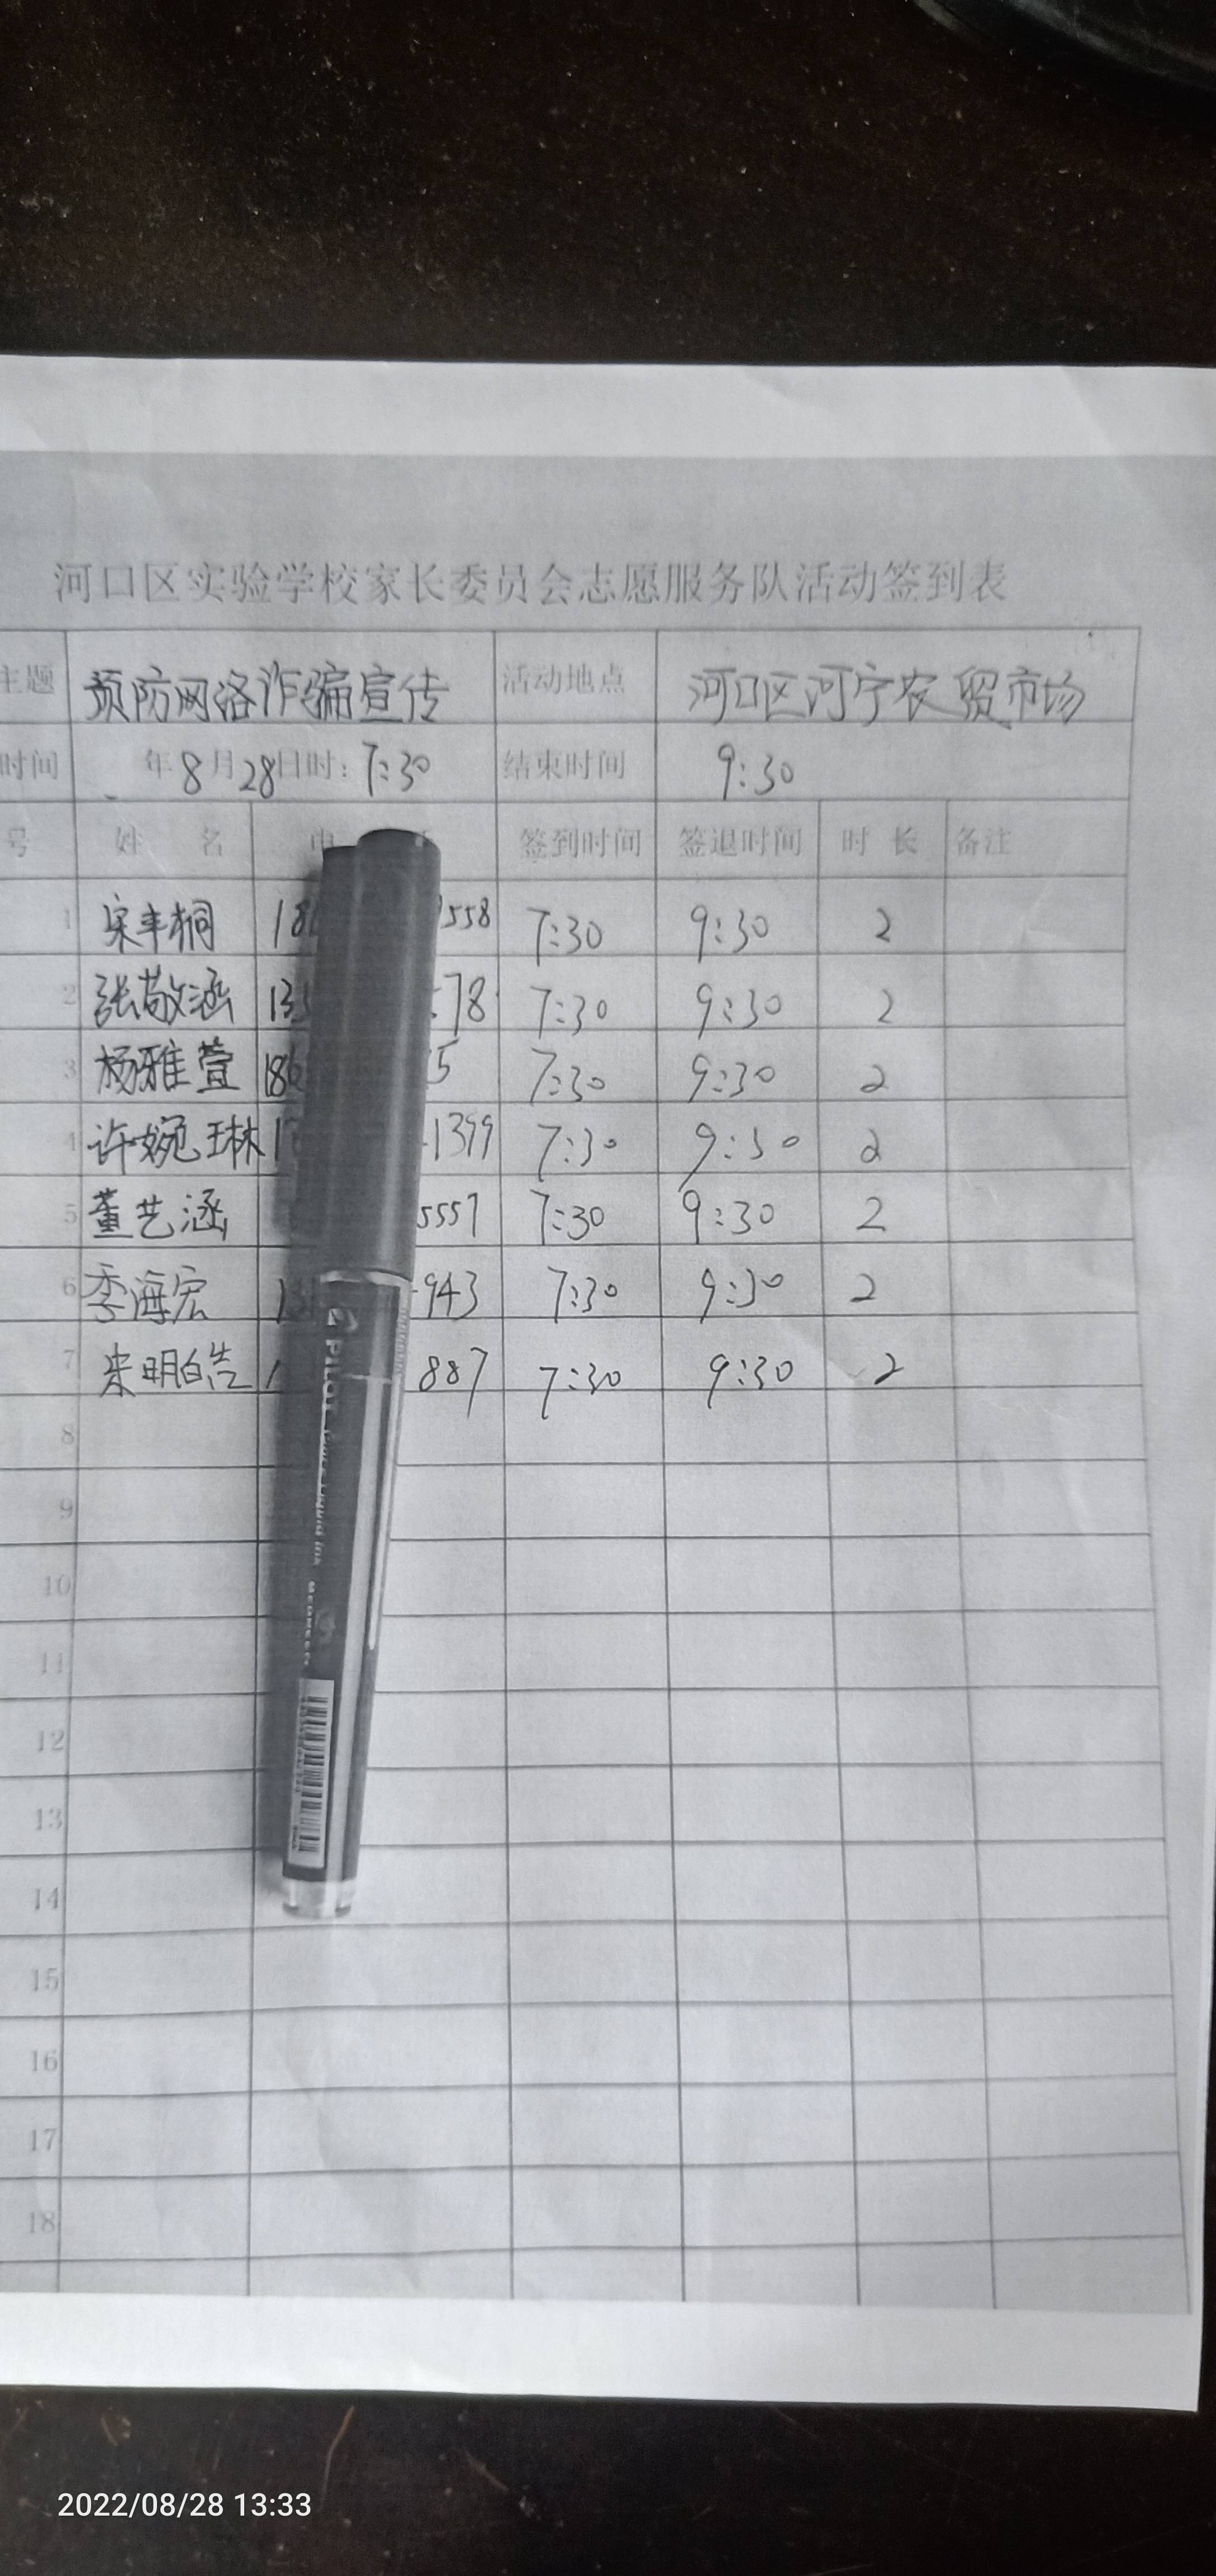 河口区实验学校家长委员会志愿服务队活动签到表
主题 预防网洛诈骗宣传 活动地点 河口区河宁农贸市场
时间 年8月28日时：7:30 结束时间 9:30
号 姓 名 电 签到时间 签退时间 时 长 备注
1 宋丰桐 18 558 7:30 9:30 2
2 张敬涵 13 78 7:30 9:30 2
3 杨雅萱 186 5 7:30 9:30 2
4 许婉琳 1 1399 7:30 9:30 2
5 董艺涵 5557 7:30 9:30 2
6 季海宏 13 943 7:30 9:30 2
7 宋明皓 1 887 7:30 9:30 2
8
9
10
11
12
13
14
15
16
17
18
PILOT
2022/08/28 13:33